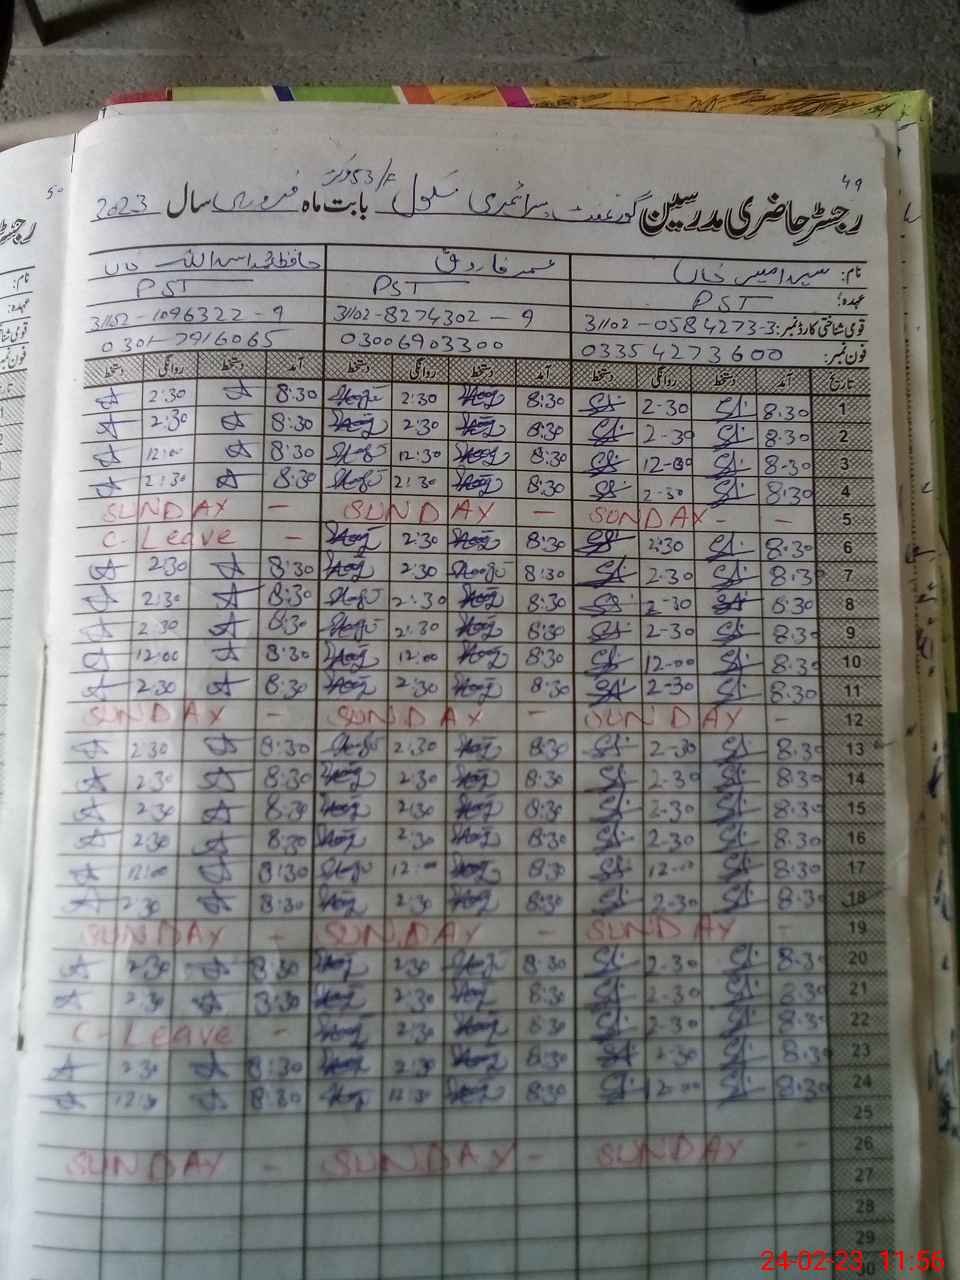 49
رجسٹر حاضری مدرسین گورنمنٹ پرائمری سکول 53/F بابت ماہ فروری سال 2023
نام: عمر فاروق حافظ محمد اسد اللہ خان
عہدہ: PST PST PST
قومی شناختی کارڈ نمبر: 31102-0584273-3 31102-8274302-9 31102-1096322-9
فون نمبر: 03354273600 03006903300 0301-7916065
تاریخ آمد دستخط روانگی دستخط آمد دستخط روانگی دستخط آمد دستخط روانگی دستخط
1 8.30 2-30 8:30 2:30 8:30 2:30
2 8.30 2-30 8:30 2:30 8:30 2:30
3 8-30 8:30 12:30 8:30 12:00
4 8.30 2-30 8:30 2:30 8:30 2:30
5 SUNDAY - - SUNDAY - SUNDAY -
6 8.30 2:30 8:30 2:30 C-Leave -
7 8.30 2-30 8:30 2:30 8:30 2:30
8 8.30 2-30 8:30 2:30 8:30 2:30
9 8.30 2-30 8:30 2:30 8:30 2:30
10 8.30 12-00 8:30 12:00 8:30 12:00
11 8.30 2-30 8:30 2:30 8:30 2:30
12 SUNDAY - SUNDAY - SUNDAY -
13 8.30 2-30 8:30 2:30 8:30 2:30
14 8.30 2-30 8:30 2:30 8:30 2:30
15 8.30 2-30 8:30 2:30 8:30 2:30
16 8.30 2-30 8:30 2:30 8:30 2:30
17 8.30 12-00 8:30 12:00 8:30 12:00
18 8.30 2-30 8:30 2:30 8:30 2:30
19 SUNDAY - SUNDAY - SUNDAY -
20 8.30 2-30 8:30 2:30 8:30 2:30
21 8.30 2-30 8:30 2:30 8:30 2:30
22 8.30 2-30 8:30 2:30 C-Leave -
23 8.30 2-30 8:30 2:30 8:30 2:30
24 8.30 12-00 8:30 12:30 8:30 12:30
25
26 SUNDAY - SUNDAY - SUNDAY -
27
28
29
30
24-02-23 11:56